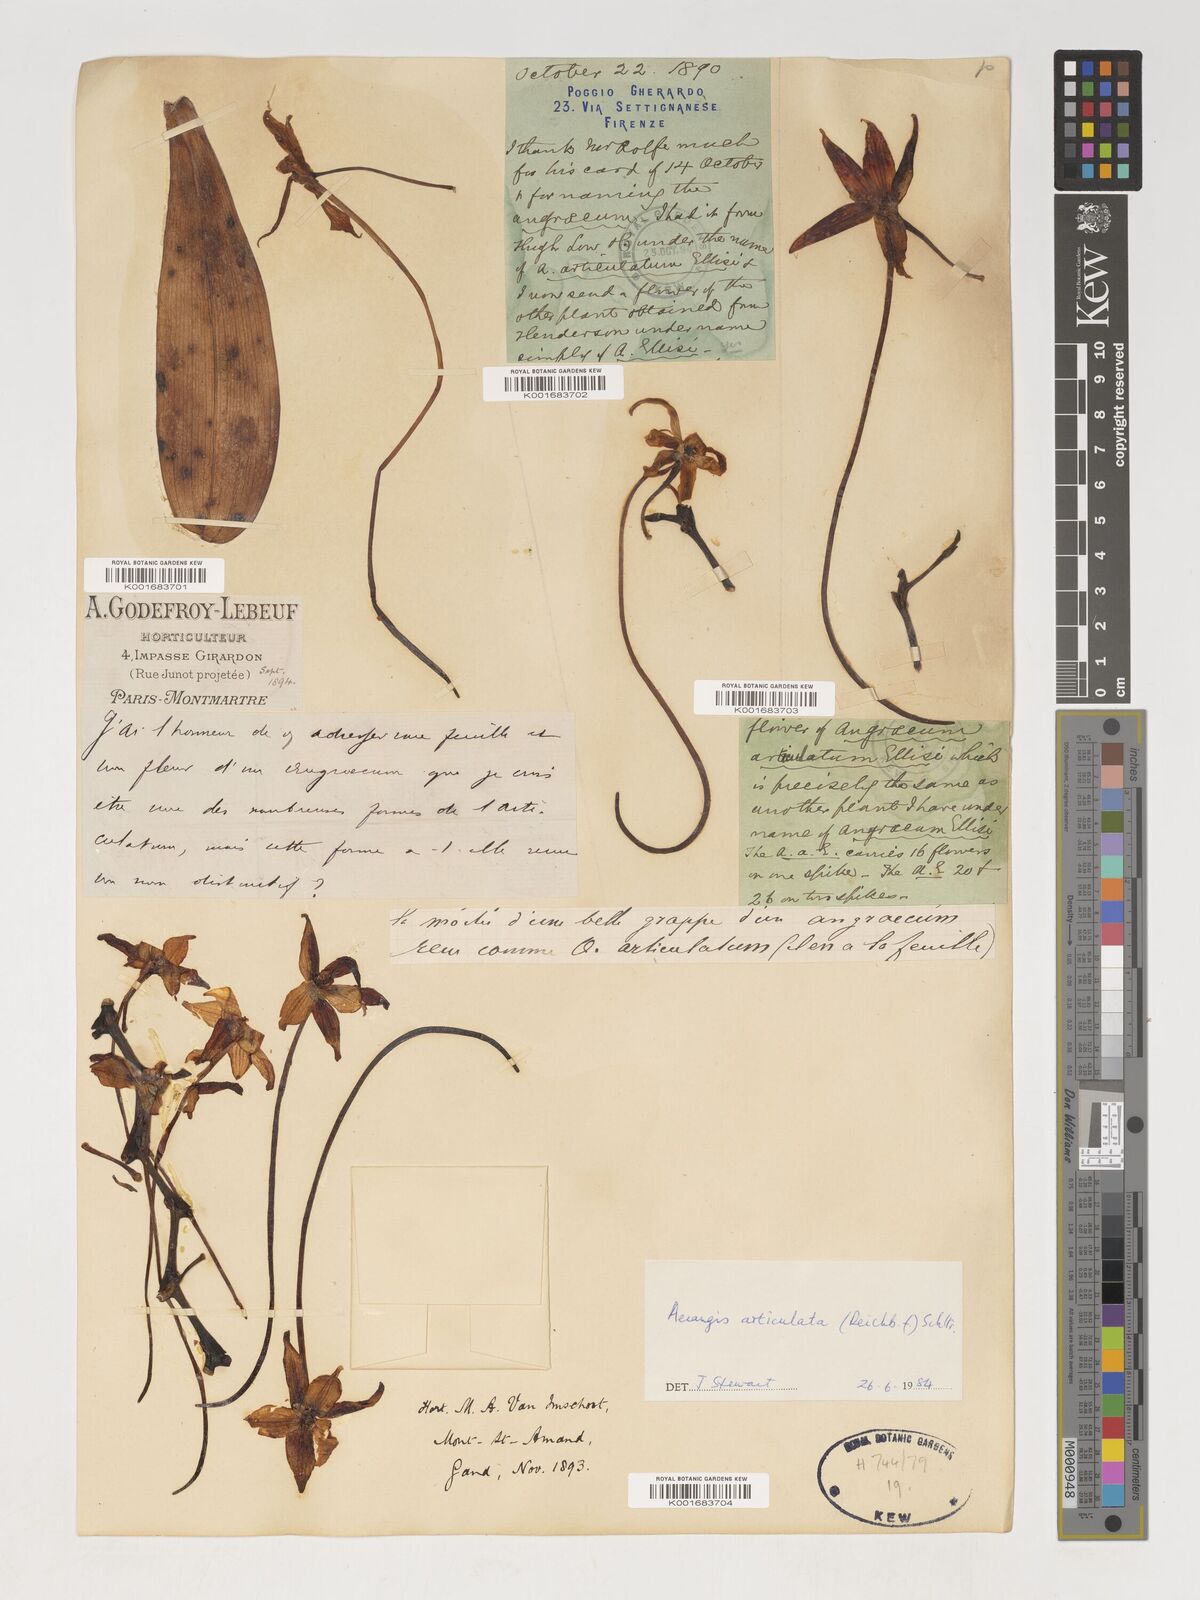 October 22. 1890
POGGIO GHERARDO
23. VIA SETTIGNANESE
FIRENZE
I thank Mr Rolfe much
for his card of 14 October
& for naming the
angræcum. I had it from
Hugh Low & Co under the name
of A. articulatum Ellisi &
I now send a flower of the
other plant obtained from
Henderson under name
simply of A. Ellisi -
ROYAL BOTANIC GARDENS KEW
K001683702
ROYAL BOTANIC GARDENS KEW
K001683701
A. GODEFROY-LEBEUF
HORTICULTEUR
4, IMPASSE GIRARDON
(Rue Junot projetée) Sept. 1894.
PARIS-MONTMARTRE
J'ai l'honneur de adresser une feuille et
une fleur d'un Angraecum que je crois
être une des nombreuses formes de l'arti-
culatum, mais cette forme a-t-elle
un nom distinctif?
ROYAL BOTANIC GARDENS KEW
K001683703
flower of Angræcum
articulatum Ellisi which
is precisely the same as
another plant I have under
name of Angræcum Ellisi
The A. a. E. carries 16 flowers
on one spike - The A. E. 20 &
26 on two spikes -
la moitié d'une belle grappe d'un angraecum
reçu comme A. articulatum (la feuille)
Aerangis articulata (Reichb. f) Schltr.
DET. J Stewart 26-6-1984
Hort. M. A. Van Imschoot,
Mont-St-Amand,
Gand, Nov. 1893.
ROYAL BOTANIC GARDENS KEW
K001683704
ROYAL BOTANIC GARDENS
H 744/79
19.
KEW
Royal Botanic Gardens
Kew
0 1 2 3 4 5 6 7 8 9 10
cm
copyright reserved
inches
centimeters
Don Williams
M000948